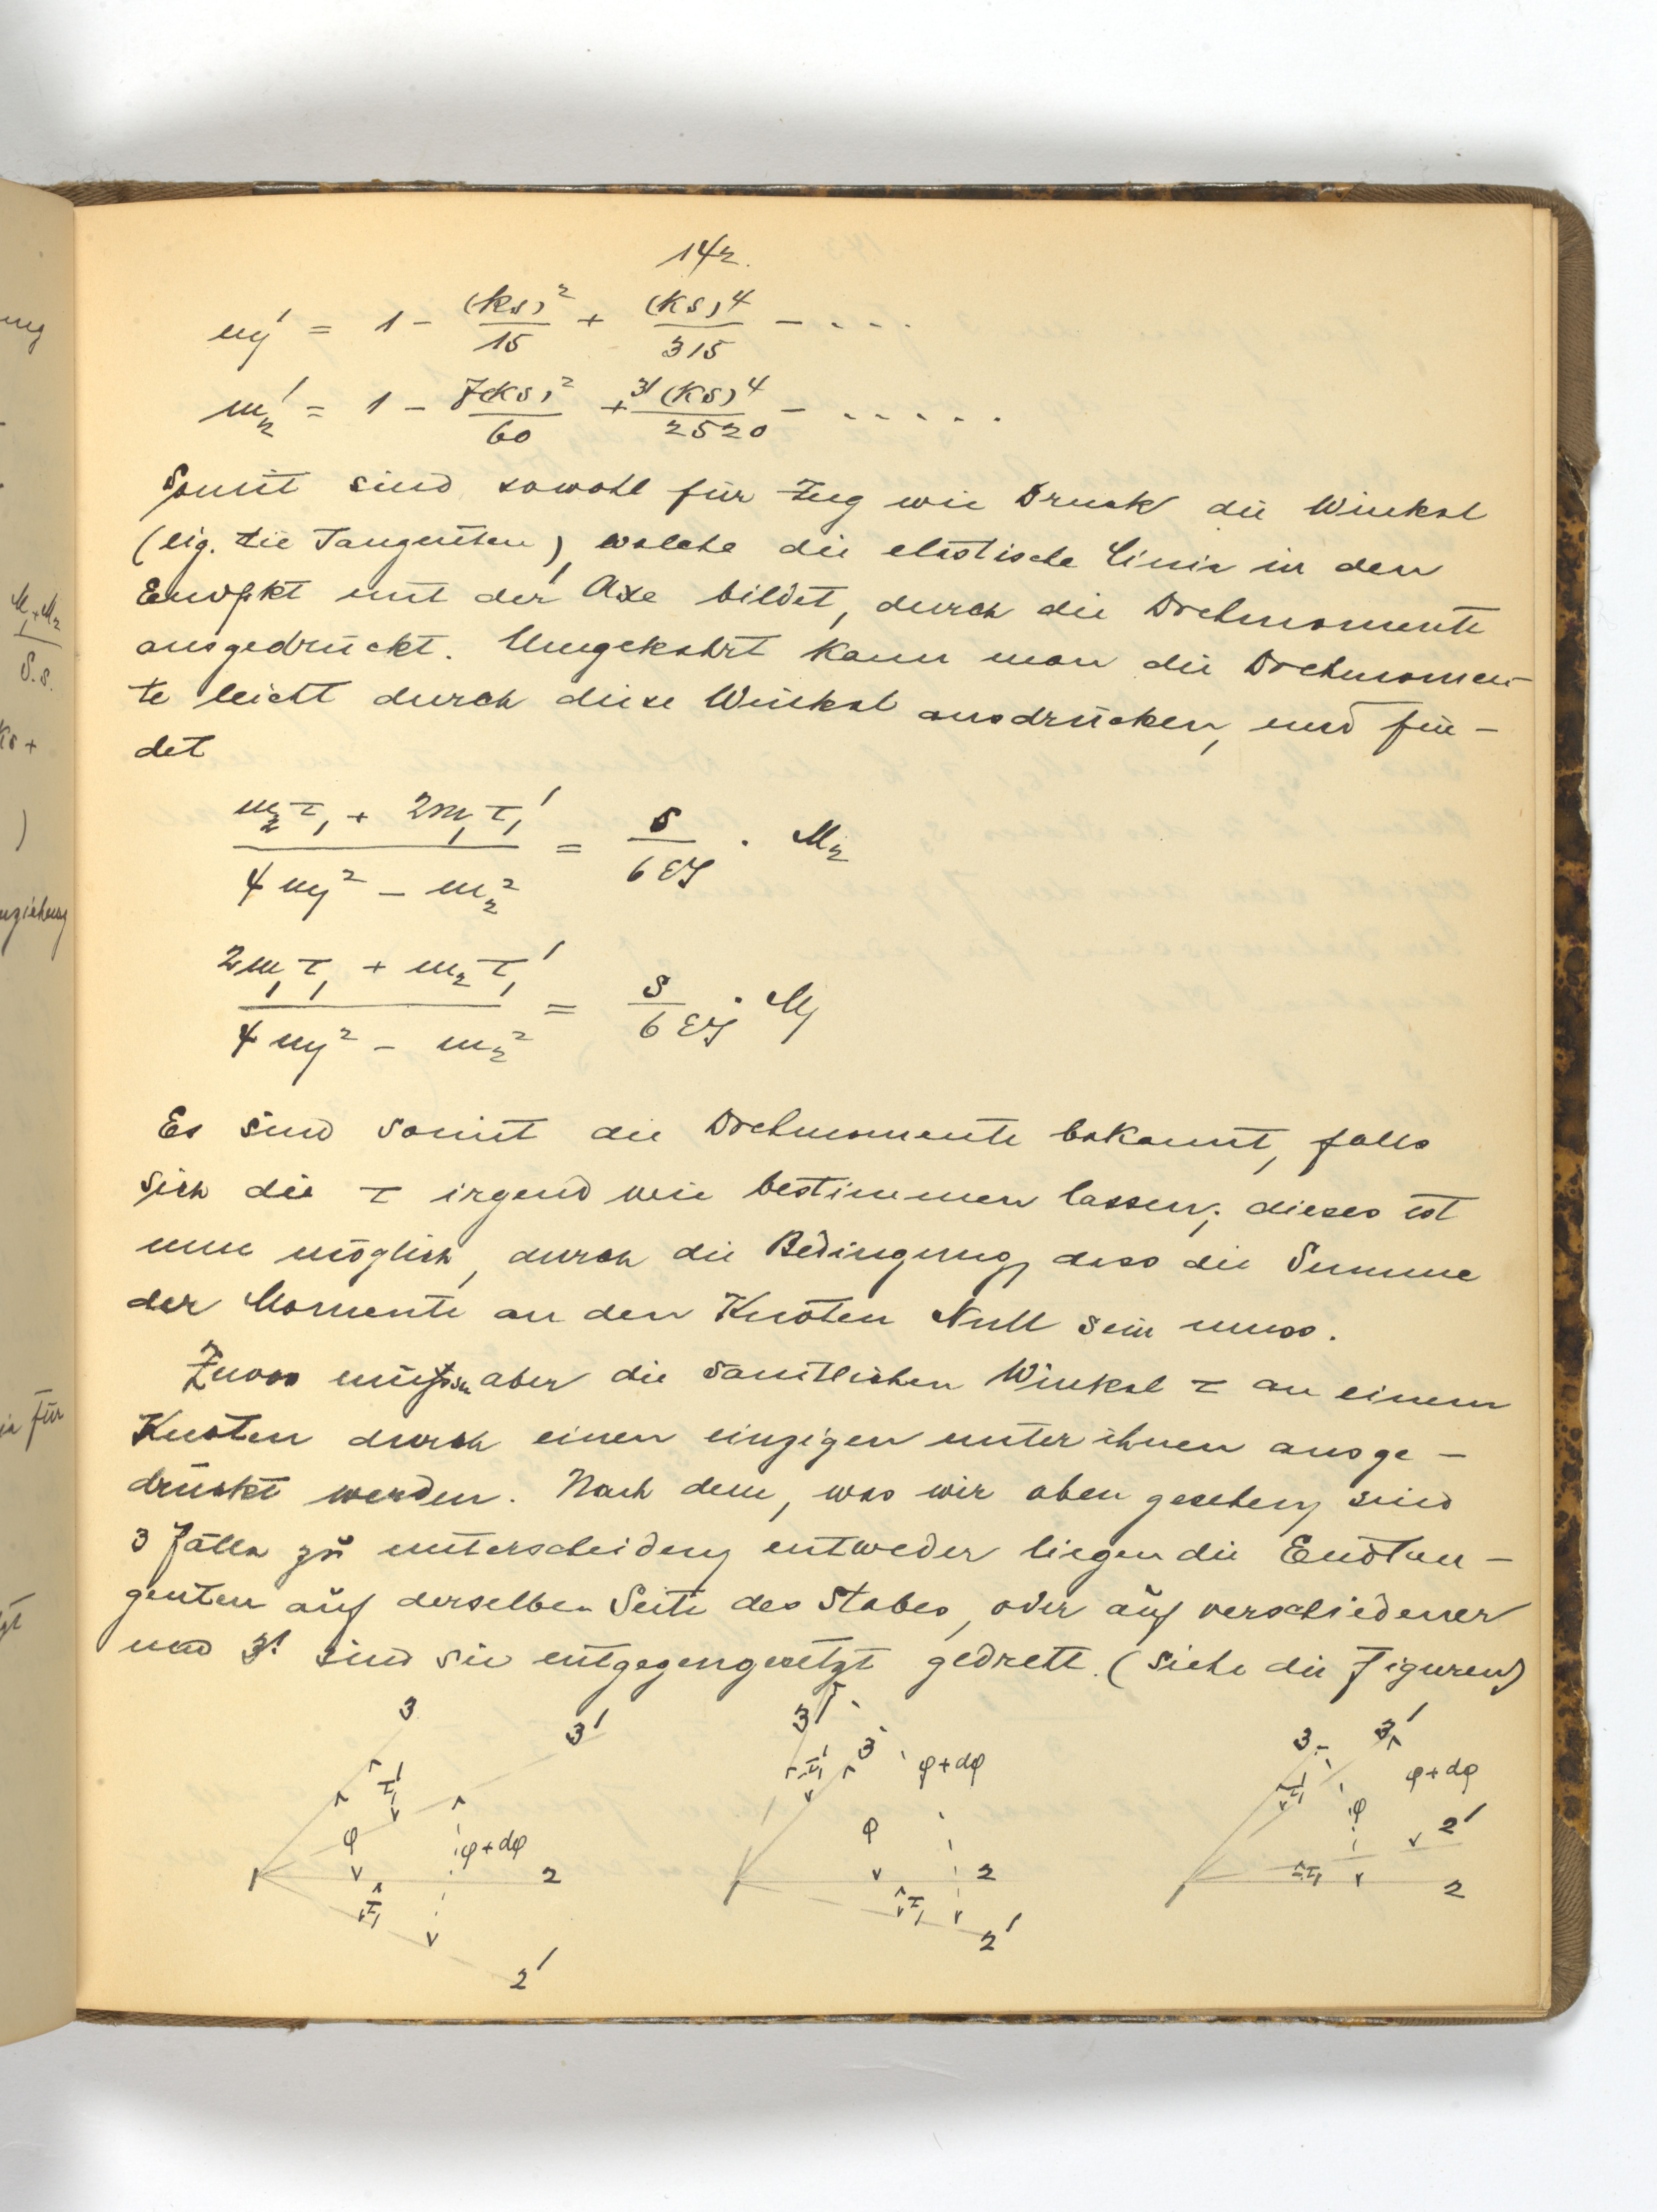 142.
m₁' = 1 - (ks)²/15 + (ks)⁴/315 - ....
m₂' = 1 - 7(ks)²/60 + 31(ks)⁴/2520 - .....
Somit sind sowohl für Zug wie Druck die Winkel
(eig. die Tangenten), welche die elastische Linie in den
Endpkt mit der Axe bildet, durch die Drehmomente
ausgedrückt. Umgekehrt kann man die Drehmomen-
te leicht durch diese Winkel ausdrücken, und fin-
det
(m₂τ₁ + 2m₁τ₁')/(4m₁² - m₂²) = s/6EJ · M₂
(2m₁τ₁ + m₂τ₁')/(4m₁² - m₂²) = s/6EJ · M₁
Es sind somit die Drehmomente bekannt, falls
sich die τ irgend wie bestimmen lassen; dieses ist
nun möglich, durch die Bedingung, dass die Summe
der Momente an den Knoten Null sein muss.
Zuvor müssen aber die sämtlichen Winkel τ an einem
Knoten durch einen einzigen unter ihnen ausge-
drückt werden. Nach dem, was wir oben gesehen, sind
3 Fälle zu unterscheiden, entweder liegen die Endtan-
genten auf derselben Seite des Stabes, oder auf verschiedener
und 3! sind sie entgegengesetzt gedreht. (siehe die Figuren)
3 3' τ₁' φ φ+dφ 2 τ₁ 2'
3' 3 τ₁' φ+dφ φ 2 τ₁ 2'
3 3' τ₁' φ+dφ φ 2' τ₁ 2
ung
M₁+M₂
S.s.
ks +
)
für